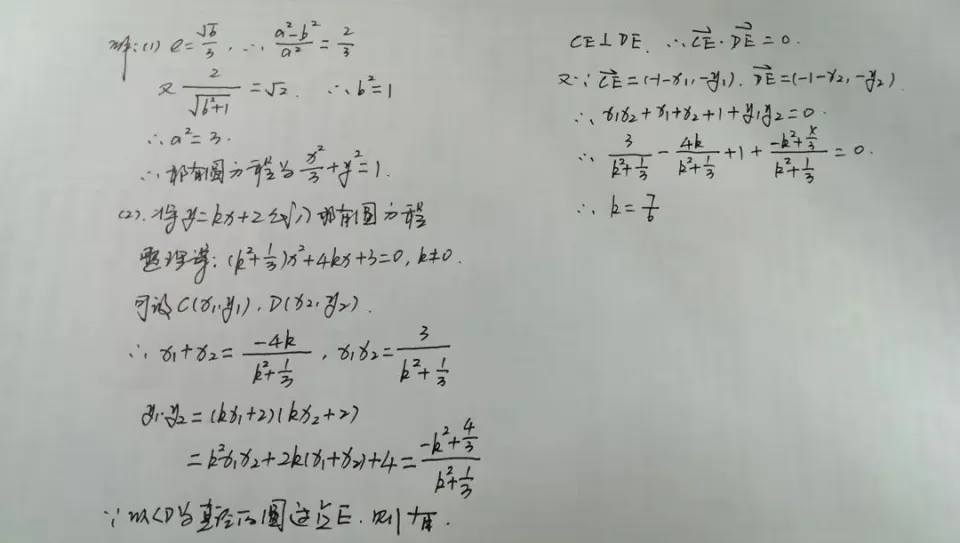 解:(1) e=√6/3, ∴ (a²-b²)/a²=2/3
又 2/√(b²+1)=√2. ∴b²=1
∴a²=3.
∴椭圆方程为 x²/3+y²=1.
(2).将y=kx+2代入椭圆方程
整理得:(k²+1/3)x²+4kx+3=0, k≠0.
可设C(x₁,y₁), D(x₂,y₂).
∴ x₁+x₂=-4k/(k²+1/3), x₁x₂=3/(k²+1/3)
y₁·y₂=(kx₁+2)(kx₂+2)
=k²x₁x₂+2k(x₁+x₂)+4=(-k²+4/3)/(k²+1/3)
∵以CD为直径的圆过点E. 则有.
CE⊥DE. ∴CE·DE=0.
又∵CE=(-1-x₁,-y₁). DE=(-1-x₂,-y₂)
∴x₁x₂+x₁+x₂+1+y₁y₂=0.
∴ 3/(k²+1/3)-4k/(k²+1/3)+1+(-k²+4/3)/(k²+1/3)=0.
∴ k=7/6